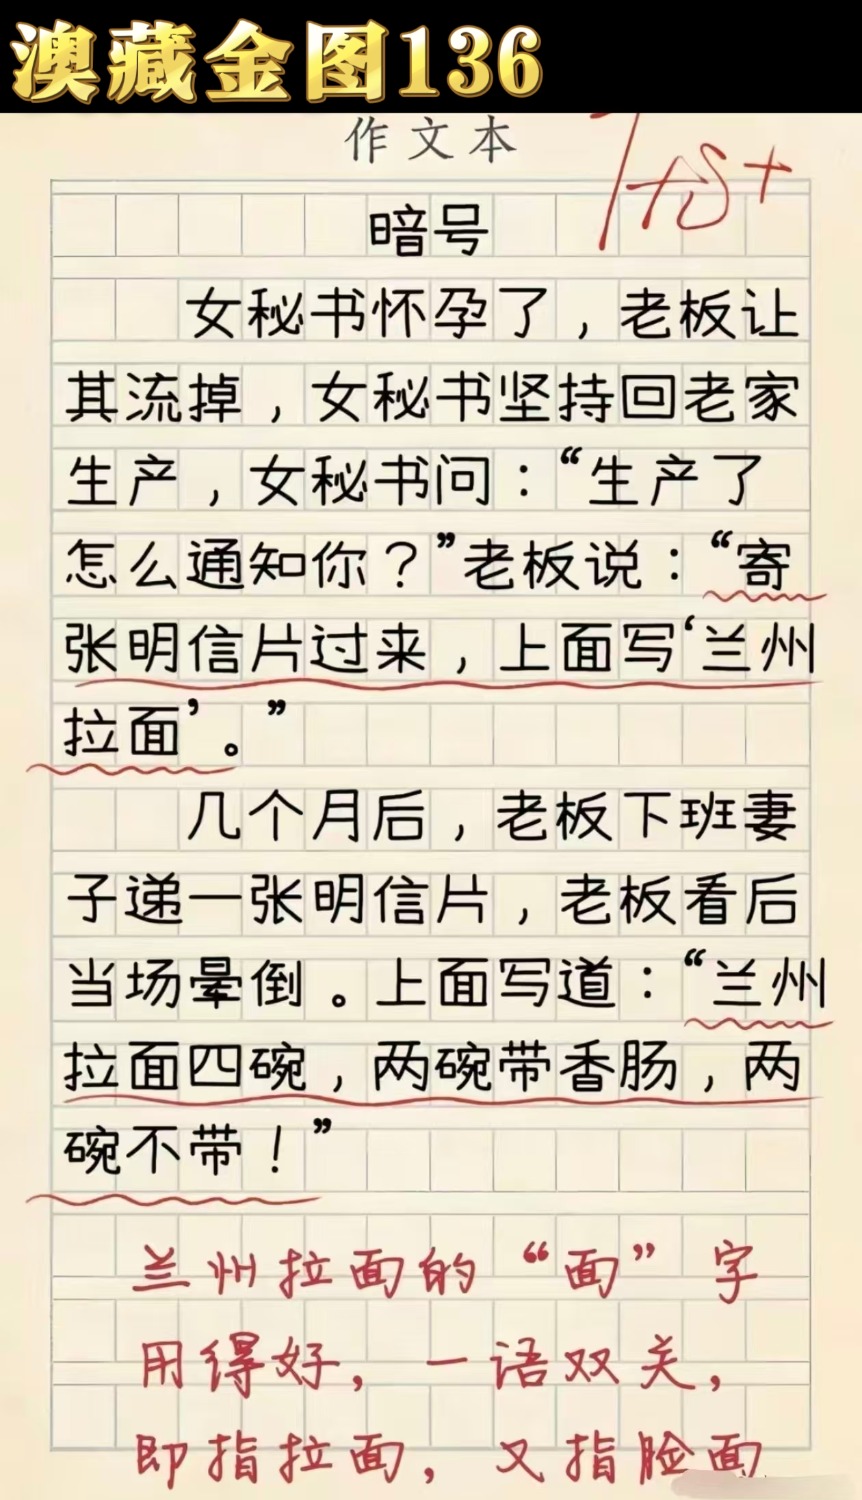 澳藏金图136
作文本
优+
暗号
女秘书怀孕了，老板让
其流掉，女秘书坚持回老家
生产，女秘书问：“生产了
怎么通知你？”老板说：“寄
张明信片过来，上面写‘兰州
拉面’。”
几个月后，老板下班妻
子递一张明信片，老板看后
当场晕倒。上面写道：“兰州
拉面四碗，两碗带香肠，两
碗不带！”
兰州拉面的“面”字
用得好，一语双关，
即指拉面，又指脸面